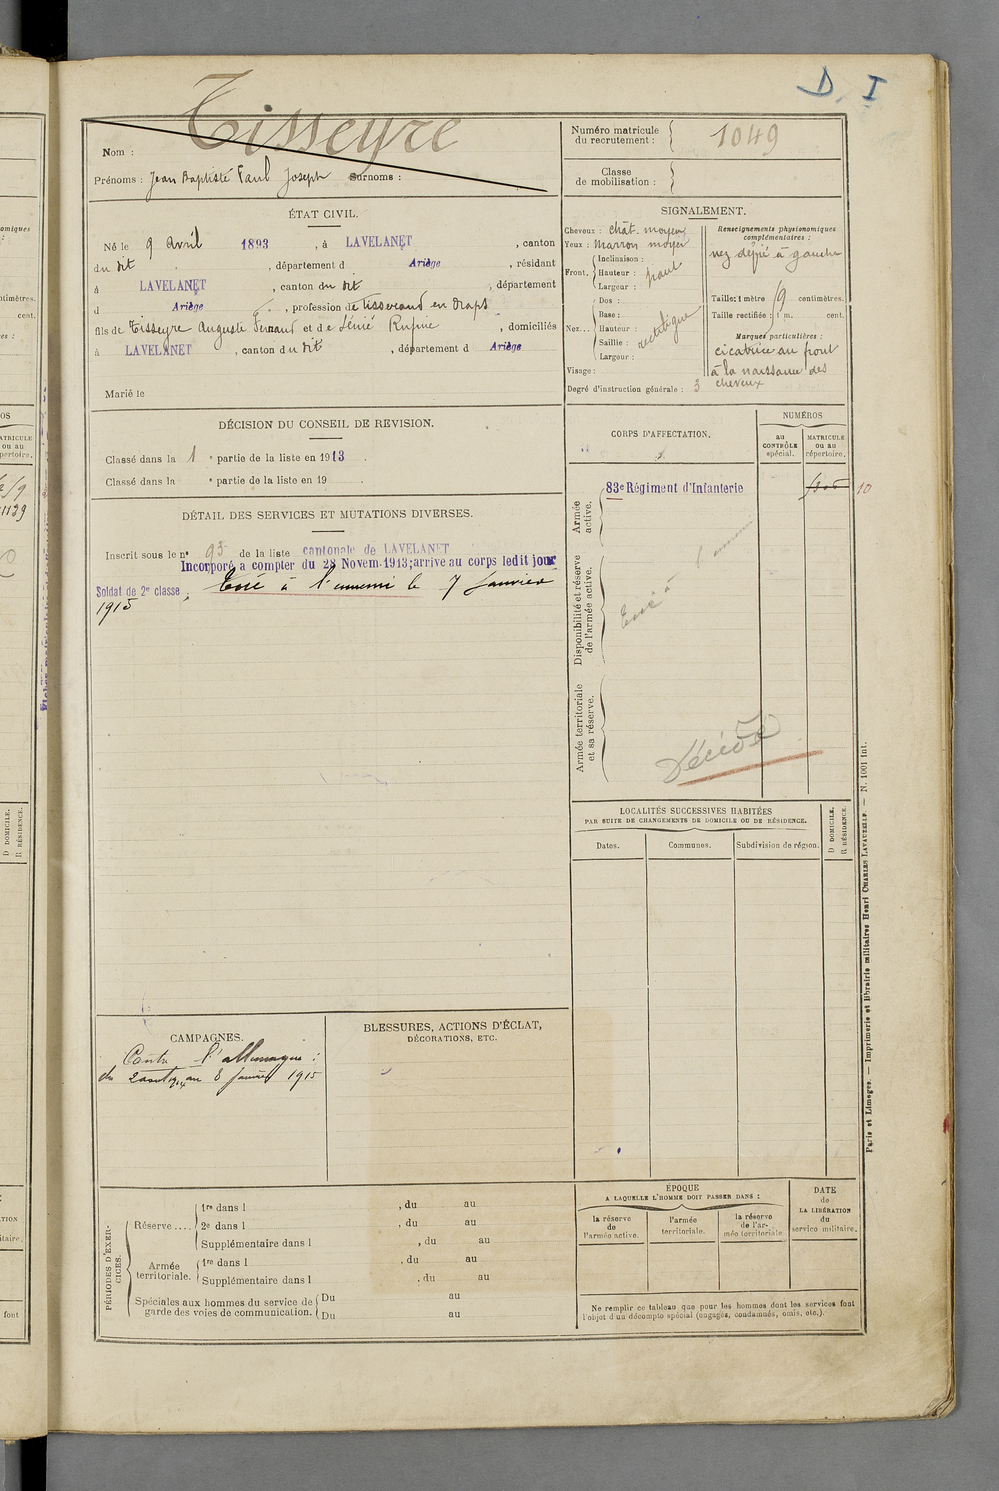 D. I
Tisseyre
Nom :
Prénoms : Jean Baptiste Paul Joseph Surnoms :
Numéro matricule
du recrutement : 1049
Classe
de mobilisation :
ÉTAT CIVIL.
Né le 9 Avril 1893, à LAVELANET, canton
du dit, département d Ariège, résidant
à LAVELANET, canton du dit, département
d Ariège, profession de tisserand en draps
fils de Tisseyre Auguste Fernand et de Sénié Rufine, domiciliés
à LAVELANET, canton du dit, département d Ariège
Marié le
SIGNALEMENT.
Cheveux : chât. moyen
Yeux : marron moyen
Front. Inclinaison :
Hauteur : haut
Largeur :
Nez... Dos :
Base :
Hauteur : rectiligne
Saillie :
Largeur :
Visage :
Degré d'instruction générale : 3
Renseignements physionomiques
complémentaires :
nez dévié à gauche
Taille : 1 mètre centimètres.
Taille rectifiée : 1 m. cent.
Marques particulières :
cicatrice au front
à la naissance des
cheveux
DÉCISION DU CONSEIL DE REVISION.
Classé dans la 1 e partie de la liste en 1913.
Classé dans la e partie de la liste en 19
DÉTAIL DES SERVICES ET MUTATIONS DIVERSES.
Inscrit sous le n° 95 de la liste cantonale de LAVELANET
Incorporé a compter du 28 Novem. 1913; arrive au corps ledit jour
Soldat de 2e classe, Tué à l'ennemi le 7 Janvier
1915
CORPS D'AFFECTATION.
NUMÉROS
au
CONTRÔLE
spécial.
MATRICULE
ou au
répertoire.
Armée
active.
83e Régiment d'Infanterie
10
Disponibilité et réserve
de l'armée active.
Tué à l'ennemi
Armée territoriale
et sa réserve.
Décédé
LOCALITÉS SUCCESSIVES HABITÉES
PAR SUITE DE CHANGEMENTS DE DOMICILE OU DE RÉSIDENCE.
Dates.
Communes.
Subdivision de région.
D DOMICILE.
R RÉSIDENCE.
CAMPAGNES.
Contre l'allemagne :
du 2 aout 1914 au 8 Janvier 1915
BLESSURES, ACTIONS D'ÉCLAT,
DÉCORATIONS, ETC.
PÉRIODES D'EXER-
CICES.
Réserve.... 1re dans l , du au
2e dans l , du au
Supplémentaire dans l , du au
Armée
territoriale. 1re dans l , du au
Supplémentaire dans l , du au
Spéciales aux hommes du service de
garde des voies de communication. Du au
Du au
ÉPOQUE
A LAQUELLE L'HOMME DOIT PASSER DANS :
la réserve
de
l'armée active.
l'armée
territoriale.
la réserve
de l'ar-
mée territoriale.
DATE
de
LA LIBÉRATION
du
service militaire.
Ne remplir ce tableau que pour les hommes dont les services font
l'objet d'un décompte spécial (engagés, condamnés, omis, etc.).
Paris et Limoges. — Imprimerie et librairie militaires Henri CHARLES-LAVAUZELLE. — N. 1001 Int.